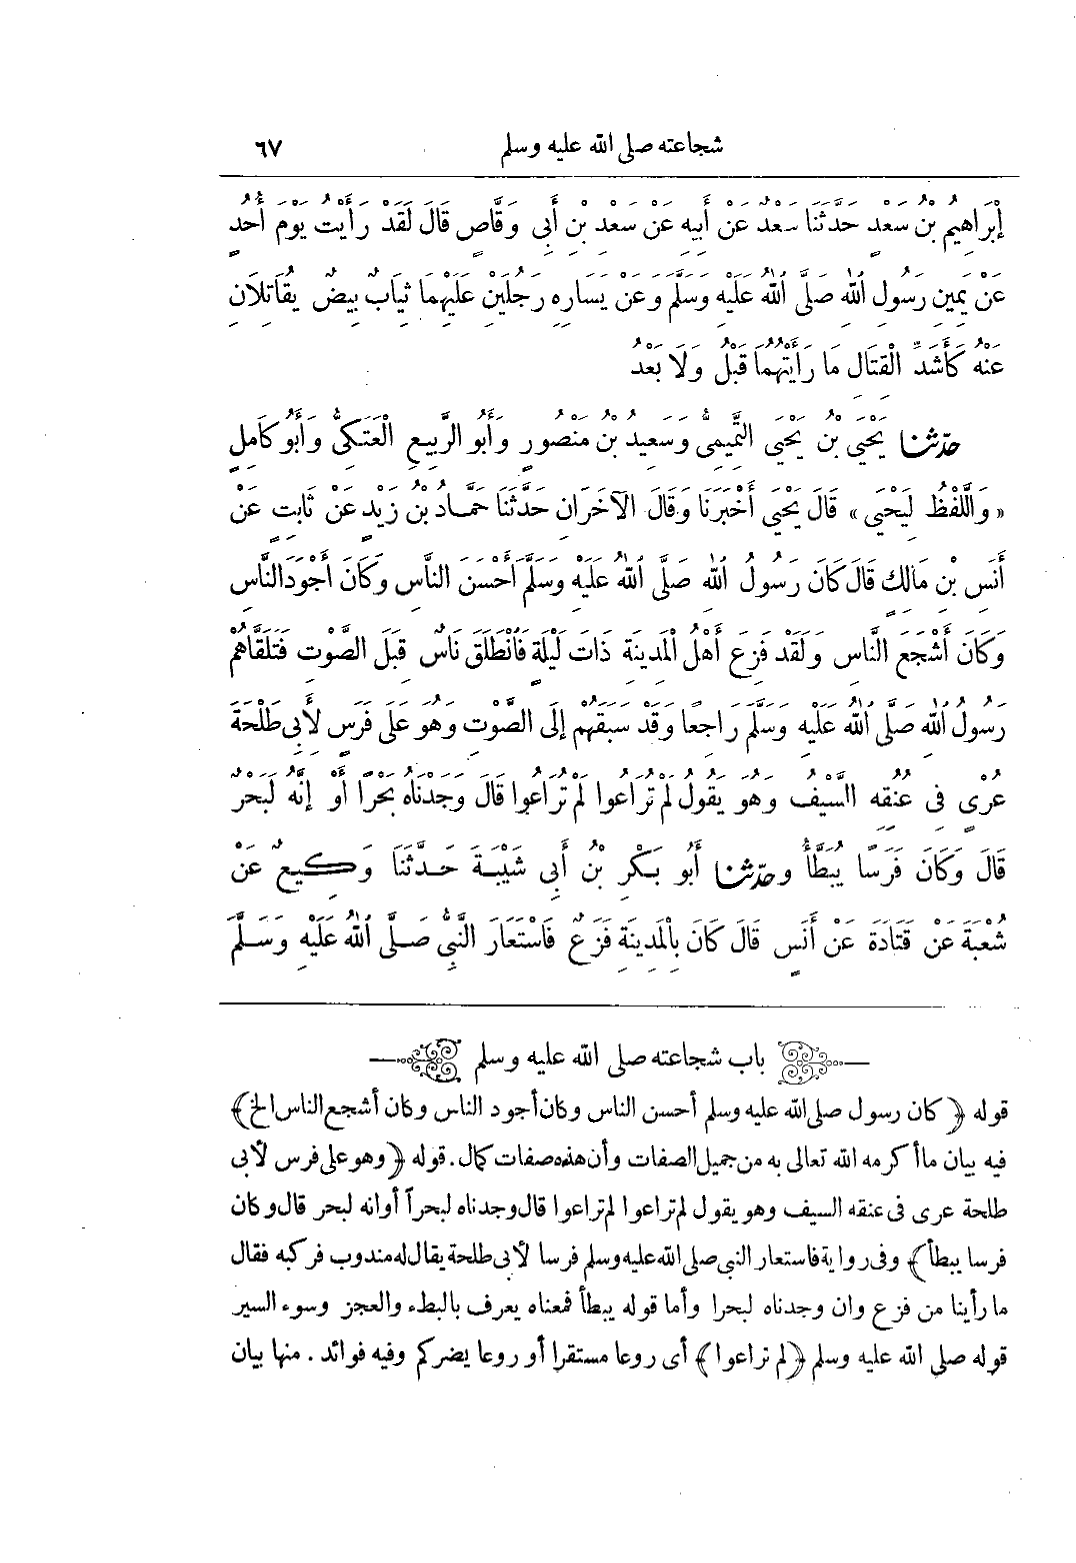 شجاعته صلى الله عليه وسلم ٦٧
إِبْرَاهِيمُ بْنُ سَعْدٍ حَدَّثَنَا سَعْدٌ عَنْ أَبِيهِ عَنْ سَعْدِ بْنِ أَبِى وَقَّاصٍ قَالَ لَقَدْ رَأَيْتُ يَوْمَ أُحُدٍ
عَنْ يَمِينِ رَسُولِ اللهِ صَلَّى اللهُ عَلَيْهِ وَسَلَّمَ وَعَنْ يَسَارِهِ رَجُلَيْنِ عَلَيْهِمَا ثِيَابٌ بِيضٌ يُقَاتِلَانِ
عَنْهُ كَأَشَدِّ الْقِتَالِ مَا رَأَيْتُهُمَا قَبْلُ وَلَا بَعْدُ
حدّثنا يَحْيَى بْنُ يَحْيَى التَّمِيمِىُّ وَسَعِيدُ بْنُ مَنْصُورٍ وَأَبُو الرَّبِيعِ الْعَتَكِىُّ وَأَبُو كَامِلٍ
« وَاللَّفْظُ لِيَحْيَى » قَالَ يَحْيَى أَخْبَرَنَا وَقَالَ الآخَرَانِ حَدَّثَنَا حَمَّادُ بْنُ زَيْدٍ عَنْ ثَابِتٍ عَنْ
أَنَسِ بْنِ مَالِكٍ قَالَ كَانَ رَسُولُ اللهِ صَلَّى اللهُ عَلَيْهِ وَسَلَّمَ أَحْسَنَ النَّاسِ وَكَانَ أَجْوَدَ النَّاسِ
وَكَانَ أَشْجَعَ النَّاسِ وَلَقَدْ فَزِعَ أَهْلُ الْمَدِينَةِ ذَاتَ لَيْلَةٍ فَانْطَلَقَ نَاسٌ قِبَلَ الصَّوْتِ فَتَلَقَّاهُمْ
رَسُولُ اللهِ صَلَّى اللهُ عَلَيْهِ وَسَلَّمَ رَاجِعًا وَقَدْ سَبَقَهُمْ إِلَى الصَّوْتِ وَهُوَ عَلَى فَرَسٍ لِأَبِى طَلْحَةَ
عُرْىٍ فِى عُنُقِهِ السَّيْفُ وَهُوَ يَقُولُ لَمْ تُرَاعُوا لَمْ تُرَاعُوا قَالَ وَجَدْنَاهُ بَحْرًا أَوْ إِنَّهُ لَبَحْرٌ
قَالَ وَكَانَ فَرَسًا يُبَطَّأُ وحدّثنا أَبُو بَكْرِ بْنُ أَبِى شَيْبَةَ حَدَّثَنَا وَكِيعٌ عَنْ
شُعْبَةَ عَنْ قَتَادَةَ عَنْ أَنَسٍ قَالَ كَانَ بِالْمَدِينَةِ فَزَعٌ فَاسْتَعَارَ النَّبِىُّ صَلَّى اللهُ عَلَيْهِ وَسَلَّمَ
باب شجاعته صلى الله عليه وسلم
قوله ﴿كان رسول صلى الله عليه وسلم أحسن الناس وكان أجود الناس وكان أشجع الناس الخ﴾
فيه بيان ما أكرمه الله تعالى به من جميل الصفات وأن هذه صفات كمال . قوله ﴿وهو على فرس لأبى
طلحة عرى فى عنقه السيف وهو يقول لم تراعوا لم تراعوا قال وجدناه لبحراً أو انه لبحر قال وكان
فرسا يبطأ﴾ وفى رواية فاستعار النبى صلى الله عليه وسلم فرسا لأبى طلحة يقال له مندوب فركبه فقال
ما رأينا من فزع وان وجدناه لبحرا وأما قوله يبطأ فمعناه يعرف بالبطء والعجز وسوء السير
قوله صلى الله عليه وسلم ﴿لم تراعوا﴾ أى روعا مستقرا أو روعا يضركم وفيه فوائد . منها بيان